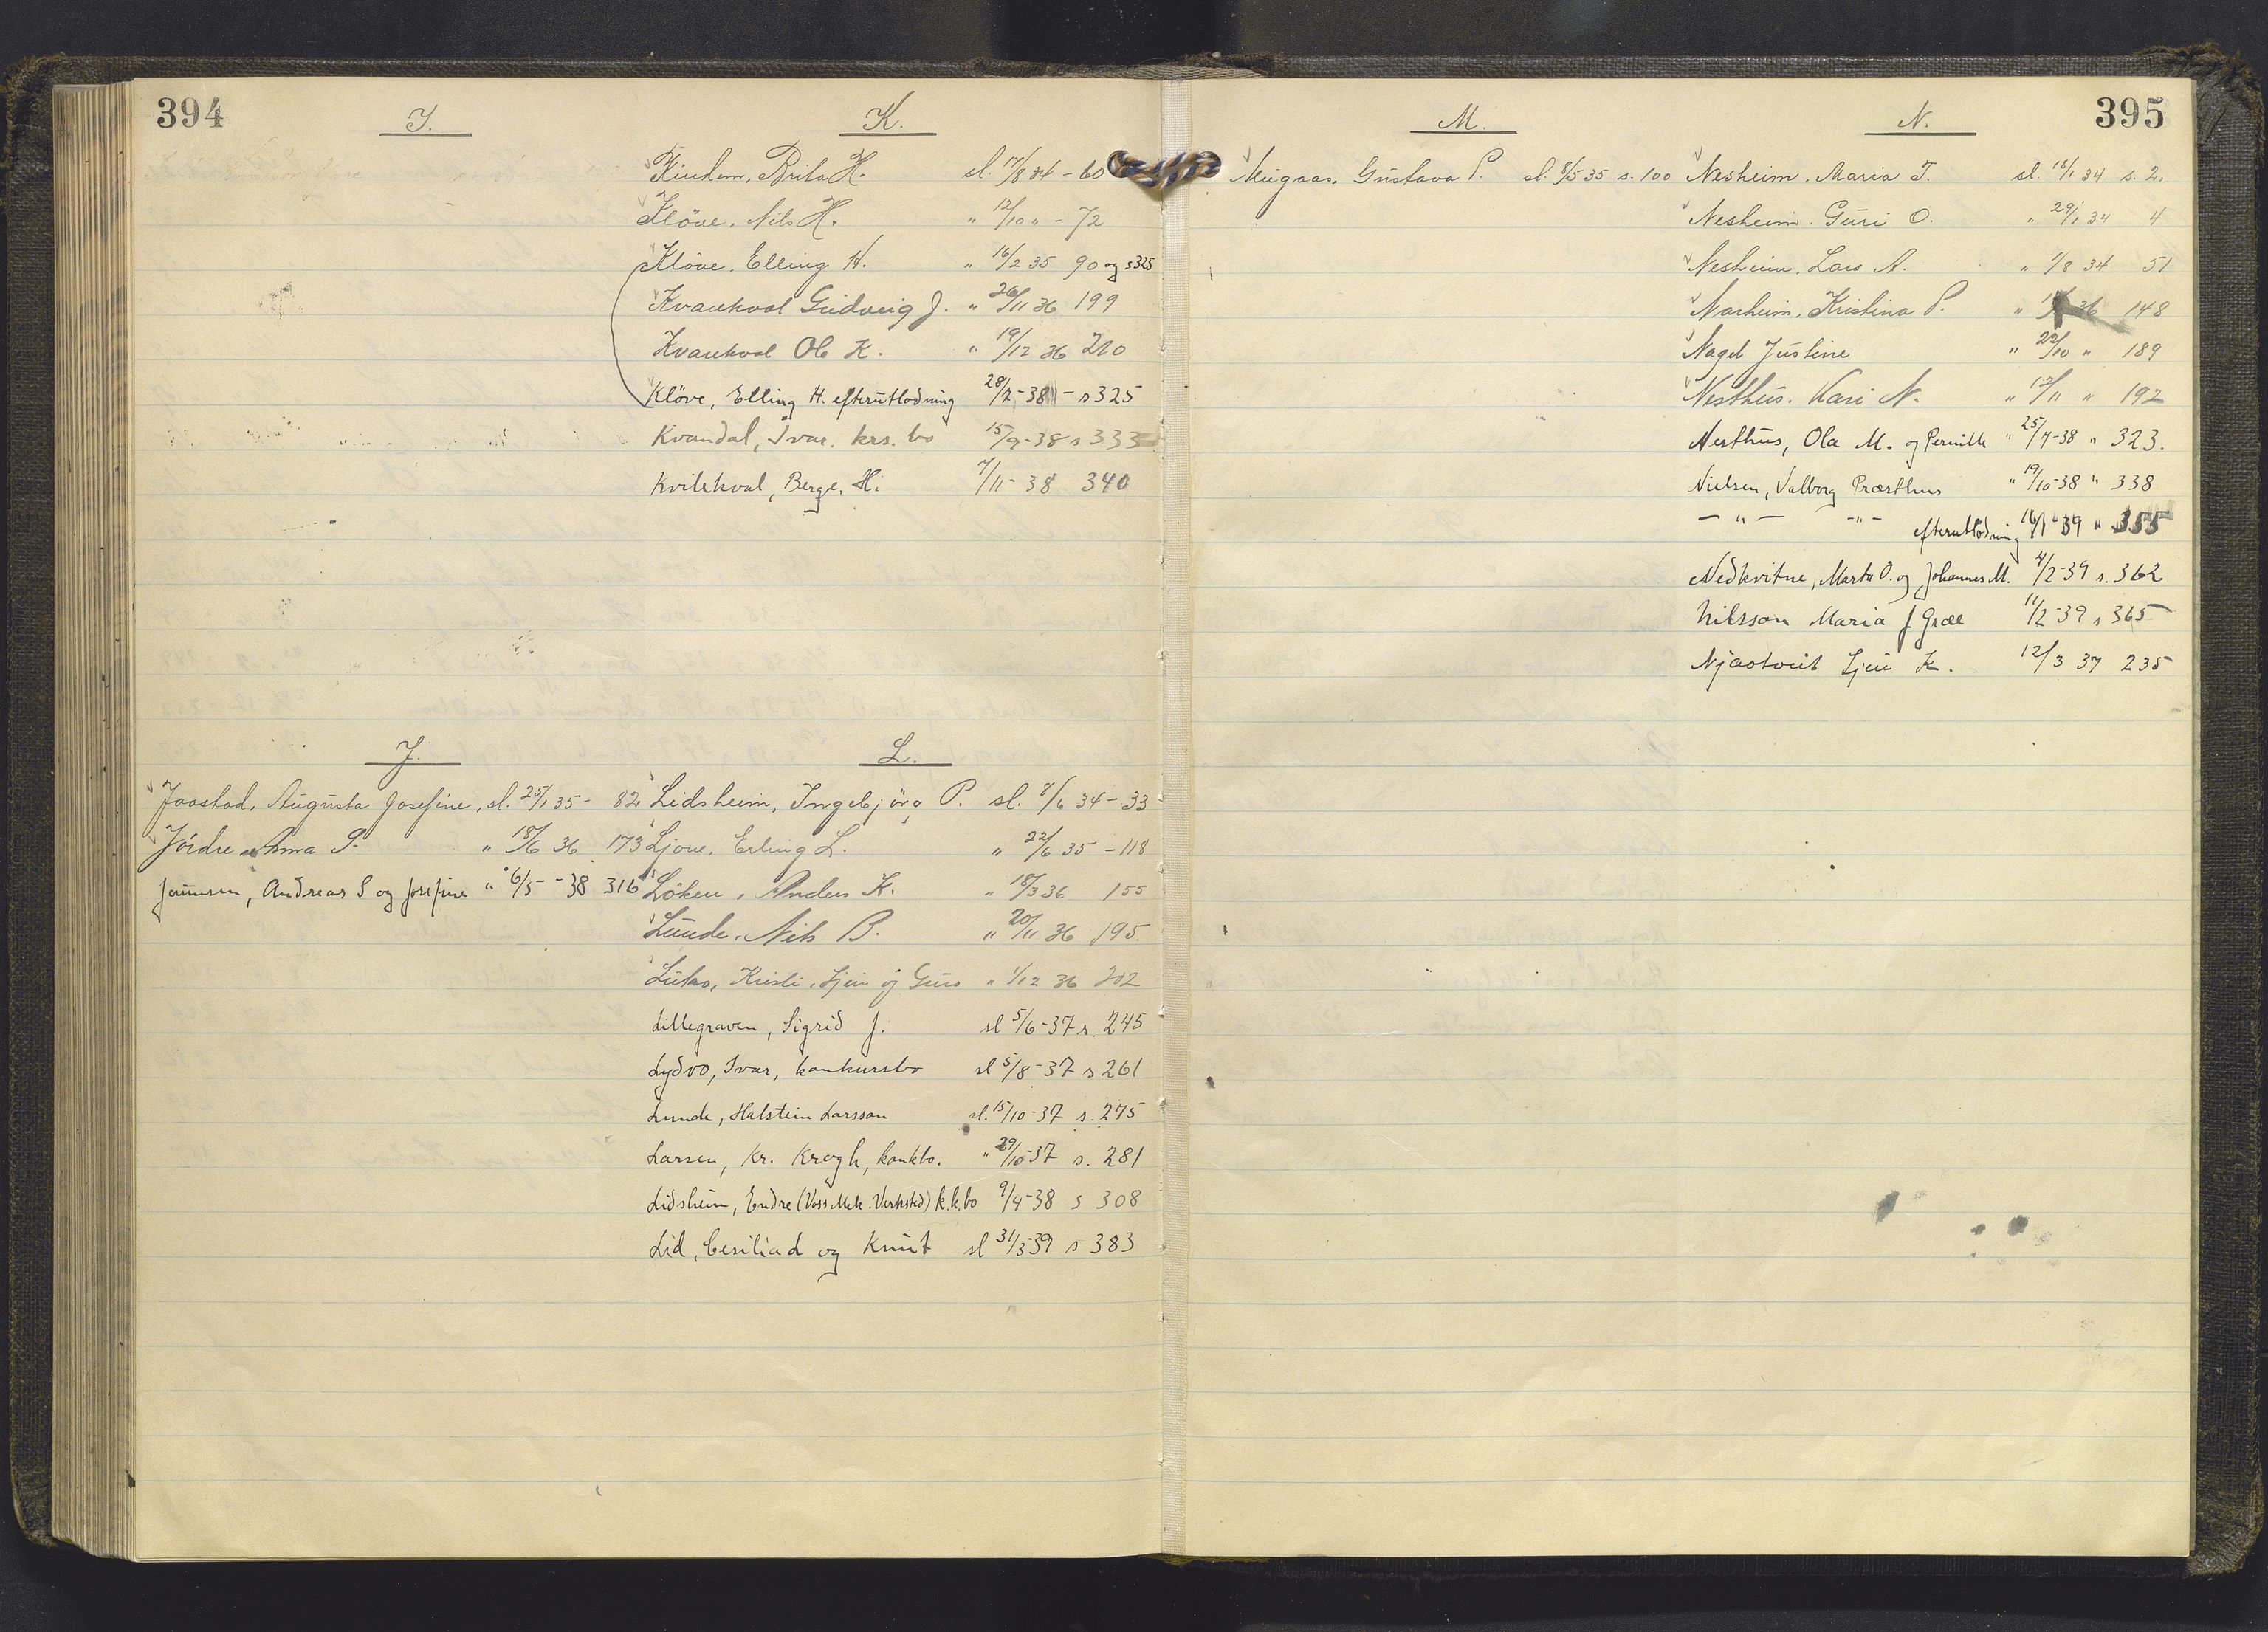 394
I.
K.
Kindem, Brita H. sl. 17/8 34 - 60
Klöve, Nils H. " 12/10 " - 72
Klöve, Elling H. " 16/2 35 90 og s 325
Kvarekval Gudveig J. " 26/11 36 199
Kvarekval Ole K. " 19/12 36 210
Klöve, Elling H. efterutlodning 28/7-38 - s 325
Kvandal, Ivar. krs. bo 15/9-38 s 333
Kvilekval, Berge, H. 7/11-38 340
J.
Jaastad, Augusta Josefine, sl. 25/1 35 - 82
Jördre Anna S. " 18/6 36 173
Jaunsen, Andreas S og Josefine " 6/5-38 316
L.
Lidsheim, Ingebjörg P. sl. 8/6 34 - 33
Ljone, Erling L. " 22/6 35 - 118
Löken, Anders K. " 18/3 36 155
Lunde, Nils B. " 20/11 36 195
Lutro, Kristi, Sjur og Guro " 1/12 36 202
Lillegraven, Sigrid J. sl 5/6-37 s. 245
Lydvo, Ivar, konkursbo sl 5/8-37 s 261
Lunde, Halstein Larsson sl. 15/10-37 s. 275
Larsen, Kr. Krogh, konkbo. " 29/10-37 s. 281
Lidsheim, Endre (Voss Mek. Verksted) k.k.bo 9/4-38 s 308
Lid, Cesilia L og Knut sl 31/3-39 s 383
395
M.
Mugaas, Gustava P. sl. 8/5 35 s. 100
N.
Nesheim, Maria T. sl. 18/1 34 s. 2.
Nesheim, Guri O. " 29/1 34 4
Nesheim, Lars A. " 1/8 34 51
Narheim, Kristina P. " 36 148
Nagel Justine " 22/10 " 189
Nesthus, Kari N. " 12/11 " 192
Nesthus, Ola M. og Pernille " 25/7-38 " 323.
Nielsen, Valborg Præsthus " 19/10-38 " 338
— " — - " - efterutlodning 16/1-39 " 355
Nedkvitne, Marta O. og Johannes M. 4/2-39 s. 362
Nilsson Maria f Græe 11/2-39 s 365
Njaotveit Sjur K. 12/3 37 235